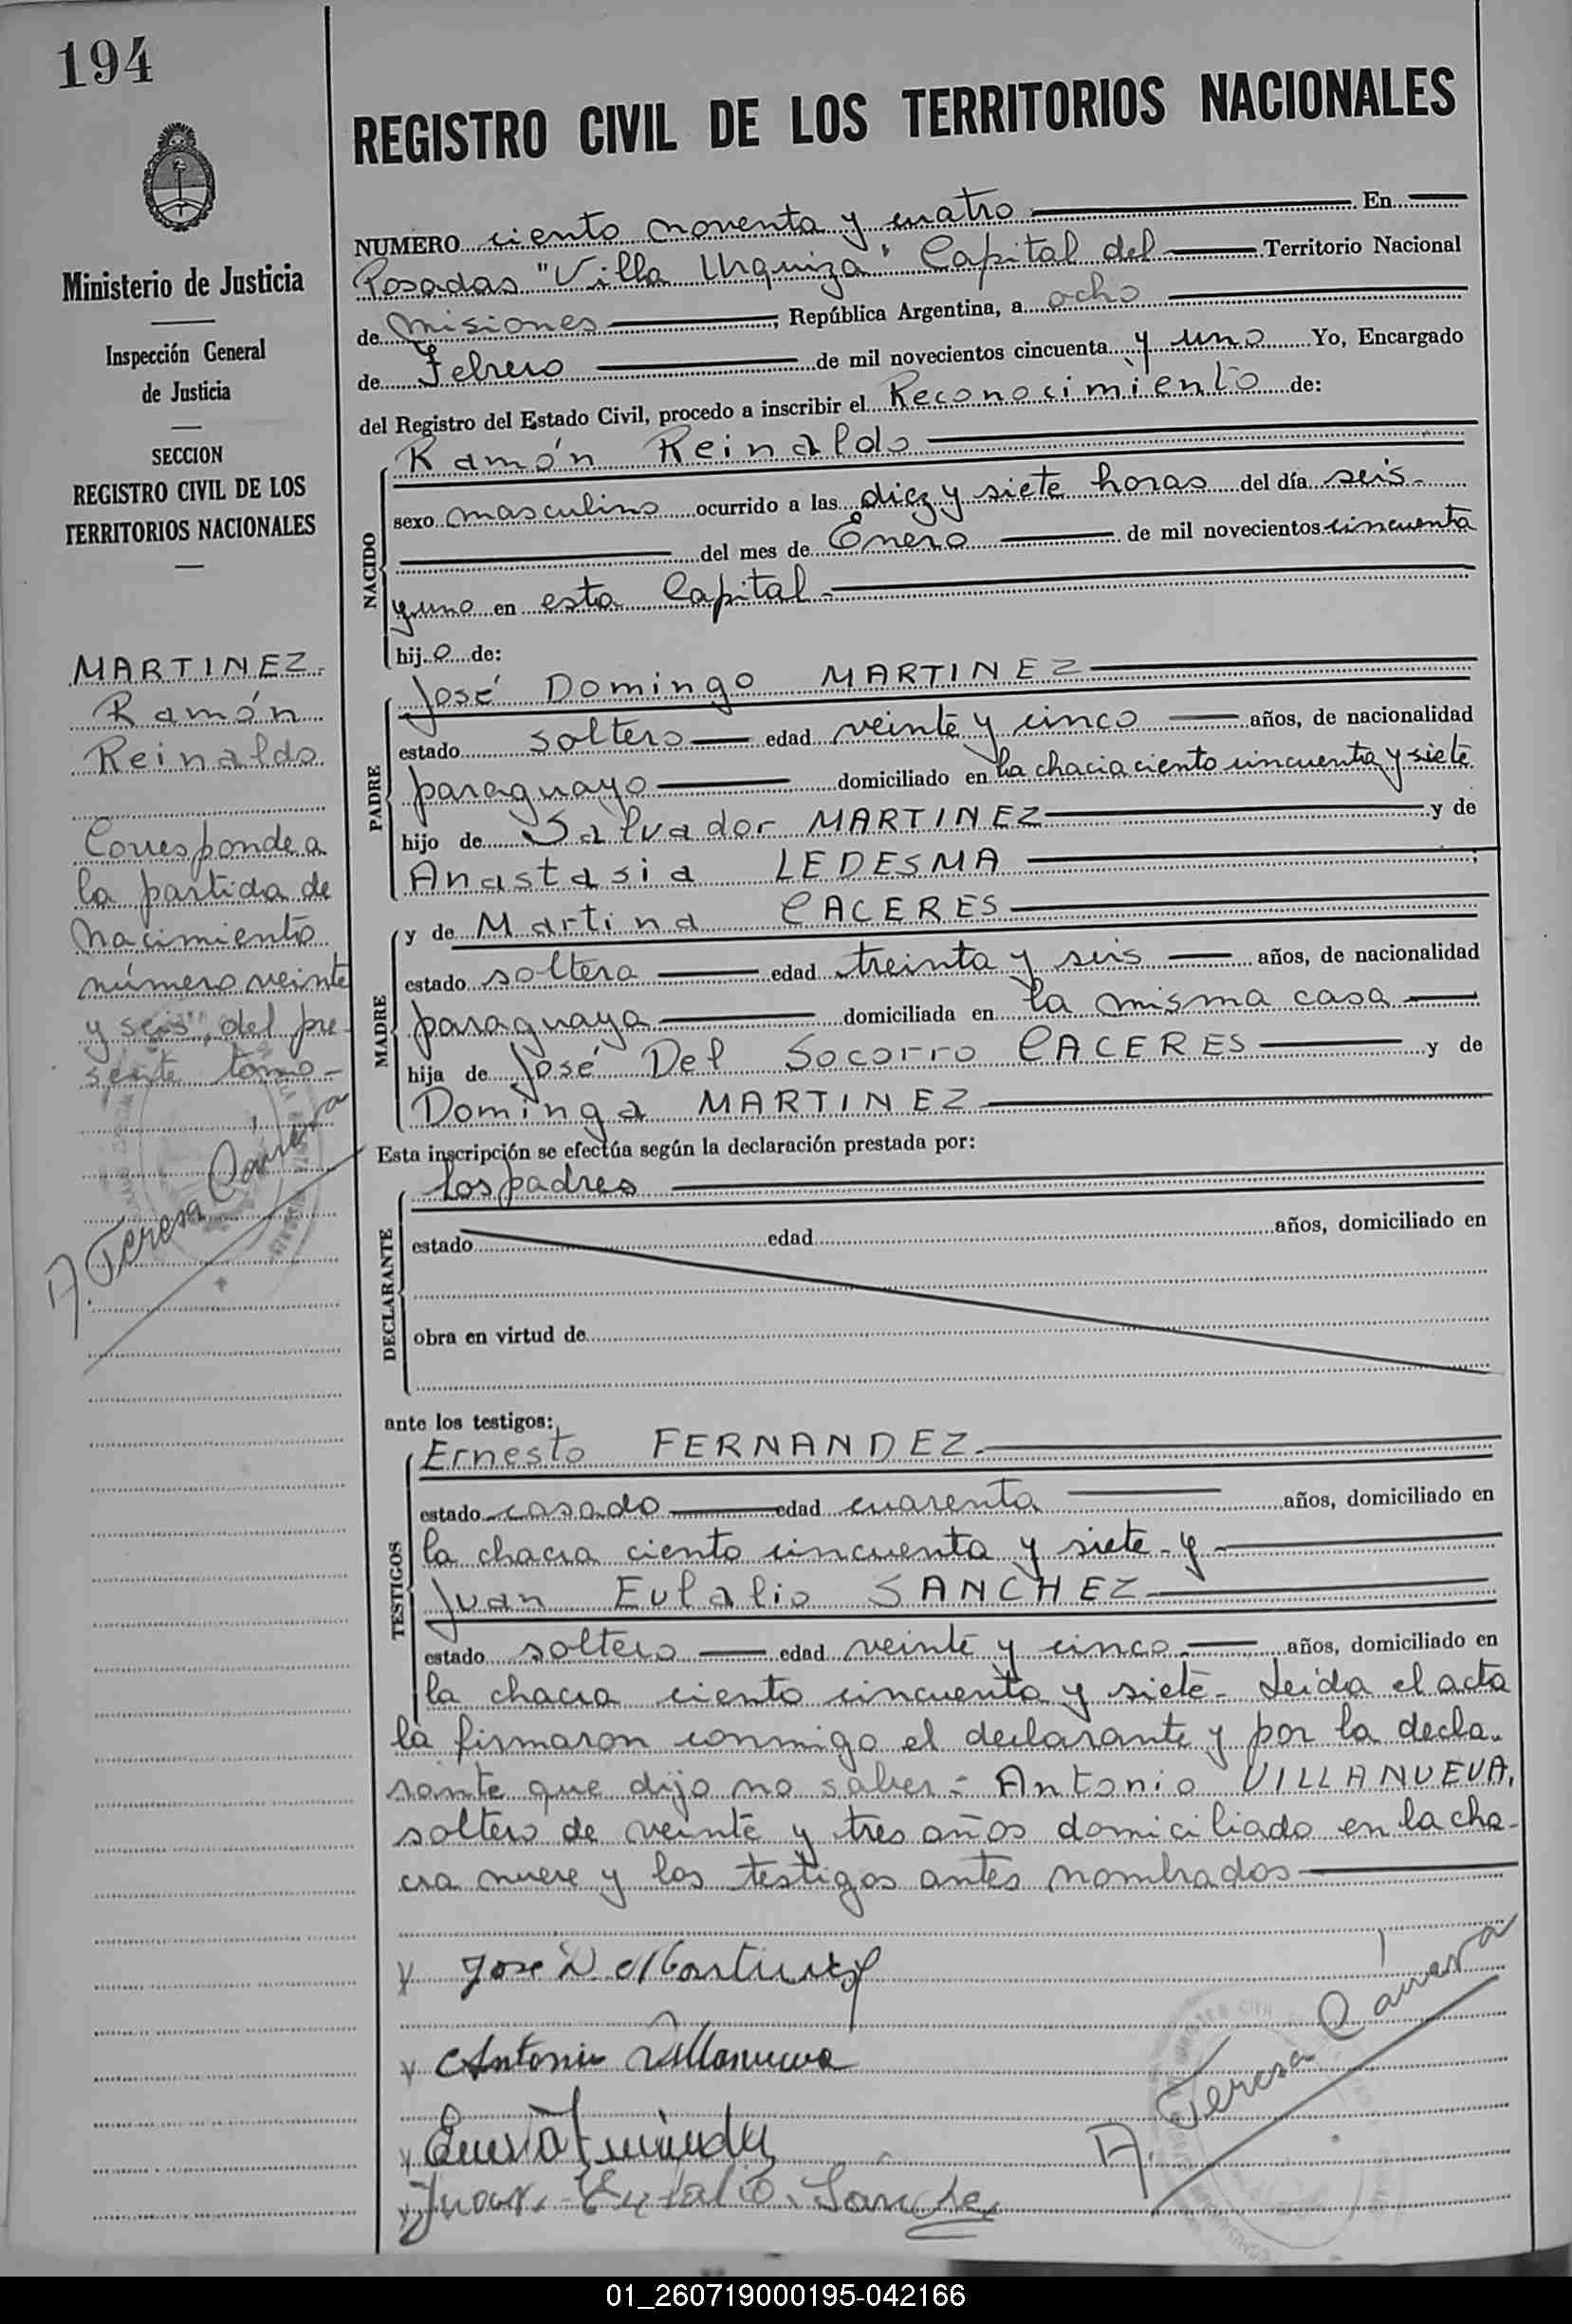 194
Ministerio de Justicia
Inspección General
de Justicia
SECCION
REGISTRO CIVIL DE LOS
TERRITORIOS NACIONALES
MARTINEZ.
Ramón
Reinaldo
Corresponde a
la partida de
nacimiento
número veinte
y seis, del pre-
sente tomo-
A. Teresa
REGISTRO CIVIL DE LOS TERRITORIOS NACIONALES
NUMERO ciento noventa y cuatro En
Posadas "Villa Urquiza" Capital del Territorio Nacional
de Misiones, República Argentina, a ocho
de Febrero de mil novecientos cincuenta y uno Yo, Encargado
del Registro del Estado Civil, procedo a inscribir el Reconocimiento de:
NACIDO
Ramón Reinaldo
sexo masculino ocurrido a las diez y siete horas del día seis-
del mes de Enero de mil novecientos cincuenta
y uno en esta Capital-
hijo de:
PADRE
José Domingo MARTINEZ
estado soltero edad veinte y cinco años, de nacionalidad
paraguayo domiciliado en la chacra ciento cincuenta y siete
hijo de Salvador MARTINEZ y de
Anastasia LEDESMA ;
MADRE
y de Martina CACERES
estado soltera edad treinta y seis años, de nacionalidad
paraguaya domiciliada en la misma casa
hija de José Del Socorro CACERES y de
Dominga MARTINEZ
Esta inscripción se efectúa según la declaración prestada por:
DECLARANTE
los padres
estado edad años, domiciliado en
obra en virtud de
ante los testigos:
TESTIGOS
Ernesto FERNANDEZ.
estado casado edad cuarenta años, domiciliado en
la chacra ciento cincuenta y siete- y-
Juan Eulalio SANCHEZ
estado soltero edad veinte y cinco.- años, domiciliado en
la chacra ciento cincuenta y siete- Leída el acta
la firmaron conmigo el declarante y por la decla-
rante que dijo no saber- Antonio VILLANUEVA,
soltero de veinte y tres años domiciliado en la cha-
cra nueve y los testigos antes nombrados
José D. Martinez
Antonio Villanueva
Juan Eulalio Sanche
A. Teresa
01_260719000195-042166